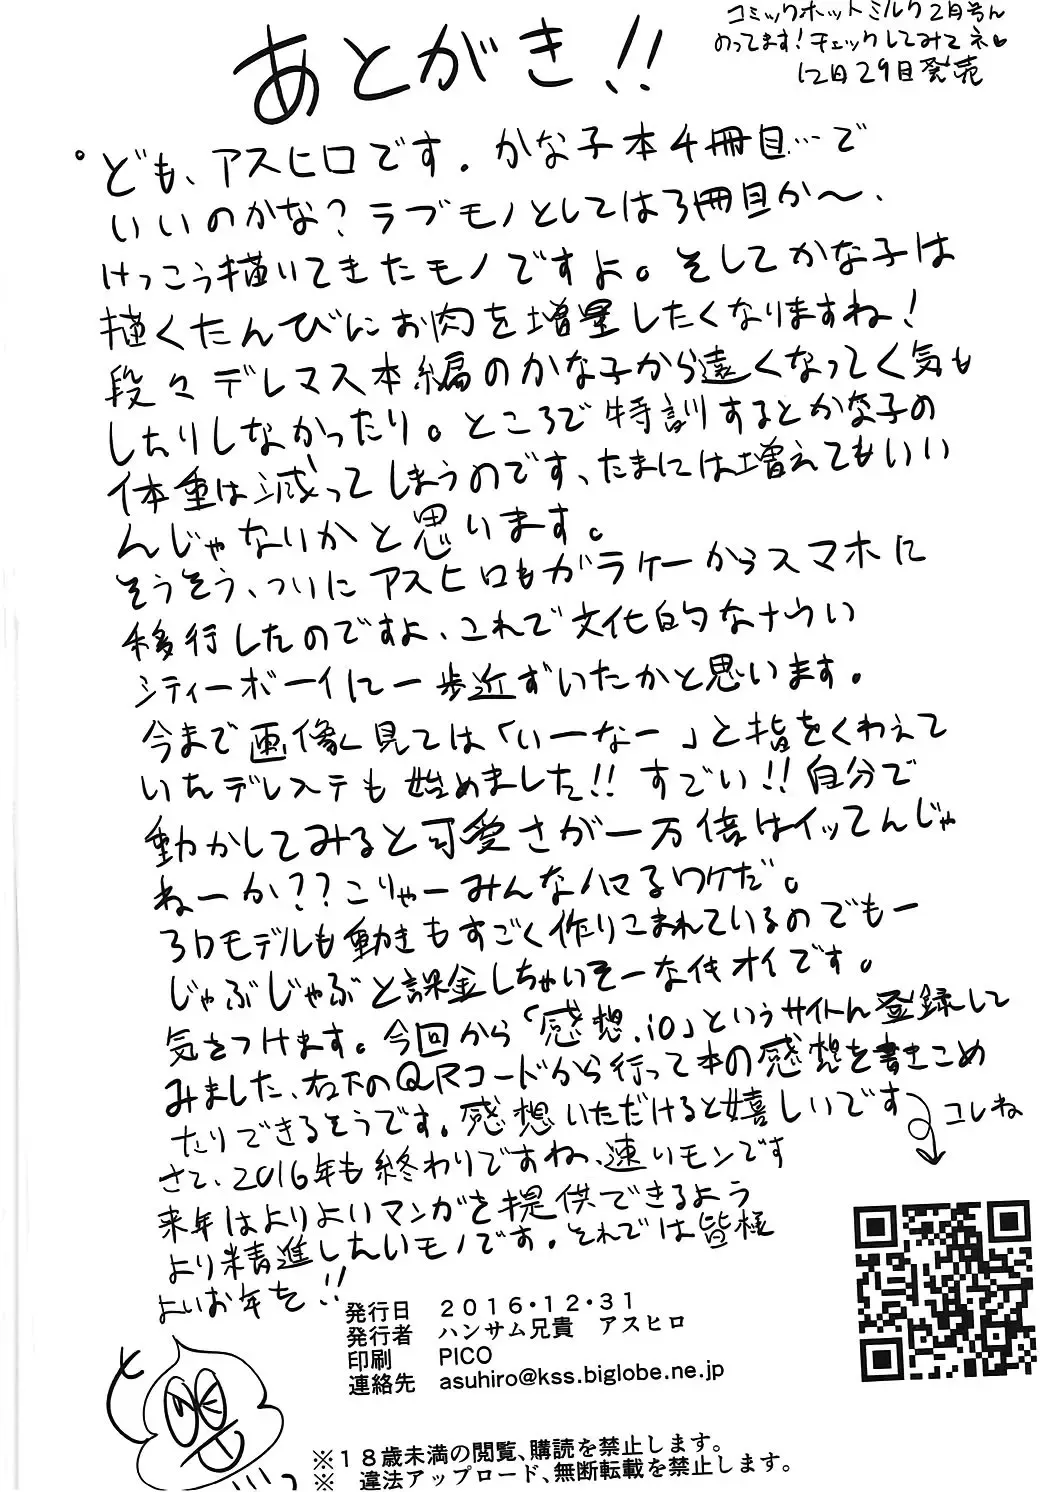 コミックホットミルク2月号ん
のってます!チェックしてみてネ♥
12月29日発売
あとがき!!
ども、アスヒロです。かな子本4冊目…で
いいのかな?ラブモノとしては3冊目か〜、
けっこう描いてきたモノですよ。そしてかな子は
描くたんびにお肉を増量したくなりますね!
段々デレマス本編のかな子から遠くなってく気も
したりしなかったり。ところで特訓するとかな子の
体重は減ってしまうのです、たまには増えてもいい
んじゃないかと思います。
そうそう、ついにアスヒロもガラケーからスマホに
移行したのですよ、これで文化的なナウい
シティーボーイに一歩近ずいたかと思います。
今まで画像見ては「いーなー」と指をくわえて
いたデレステも始めました!!すごい!!自分で
動かしてみると可愛さが一万倍はイッてんじゃ
ねーか??こりゃーみんなハマるワケだ。
3Dモデルも動きもすごく作りこまれているのでもー
じゃぶじゃぶと課金しちゃいそーなイキオイです。
気をつけます。今回から「感想.io」というサイトん登録して
みました、右下のQRコードから行って本の感想を書きこめ
たりできるそうです。感想いただけると嬉しいです
コレね
さて、2016年も終わりですね、速いモンです
来年はよりよいマンガを提供できるよう
より精進したいモノです。それでは皆様
よいお年を!!
発行日 2016・12・31
発行者 ハンサム兄貴 アスヒロ
印刷 PICO
連絡先 asuhiro@kss.biglobe.ne.jp
※18歳未満の閲覧、購読を禁止します。
※ 違法アップロード、無断転載を禁止します。